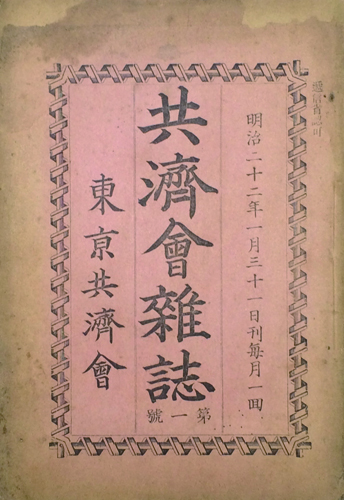 逓信省認可
明治二十二年一月三十一日刊毎月一回
共濟會雜誌
第一號
東京共濟會